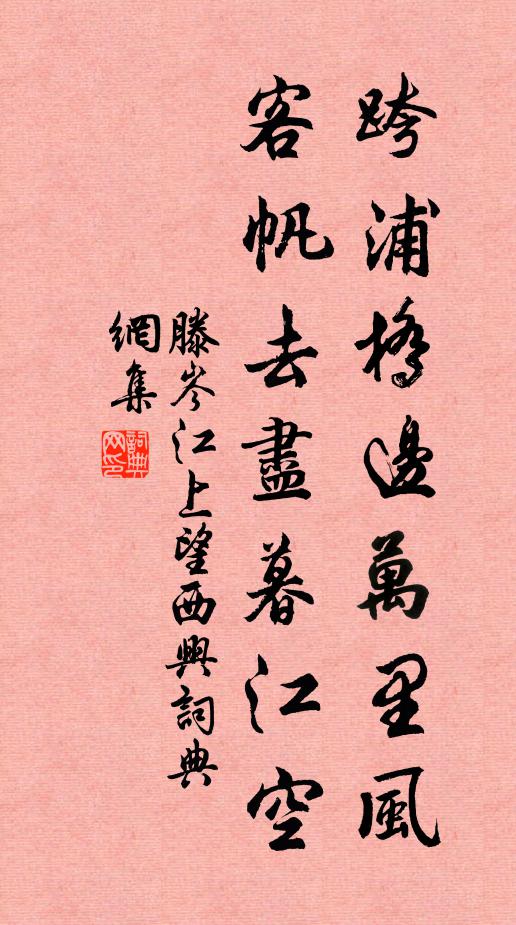 跨浦橋邊萬里風
客帆去盡暮江空
滕岑江上望西興詞典
網集
詞典网印